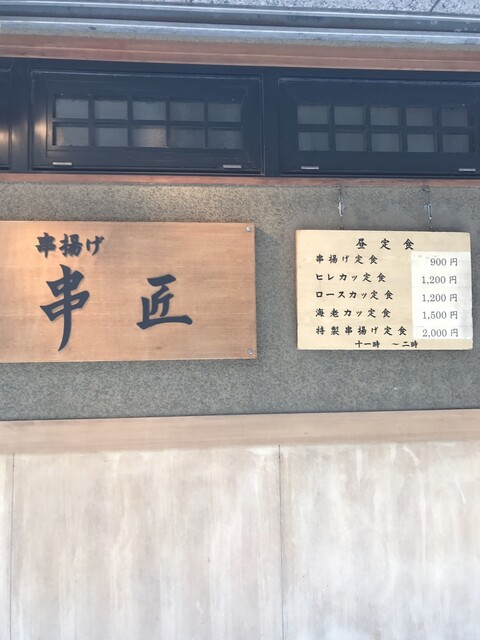 串揚げ
串匠
昼定食
串揚げ定食 900円
ヒレカツ定食 1,200円
ロースカツ定食 1,200円
海老カツ定食 1,500円
特製串揚げ定食 2,000円
十一時 〜二時